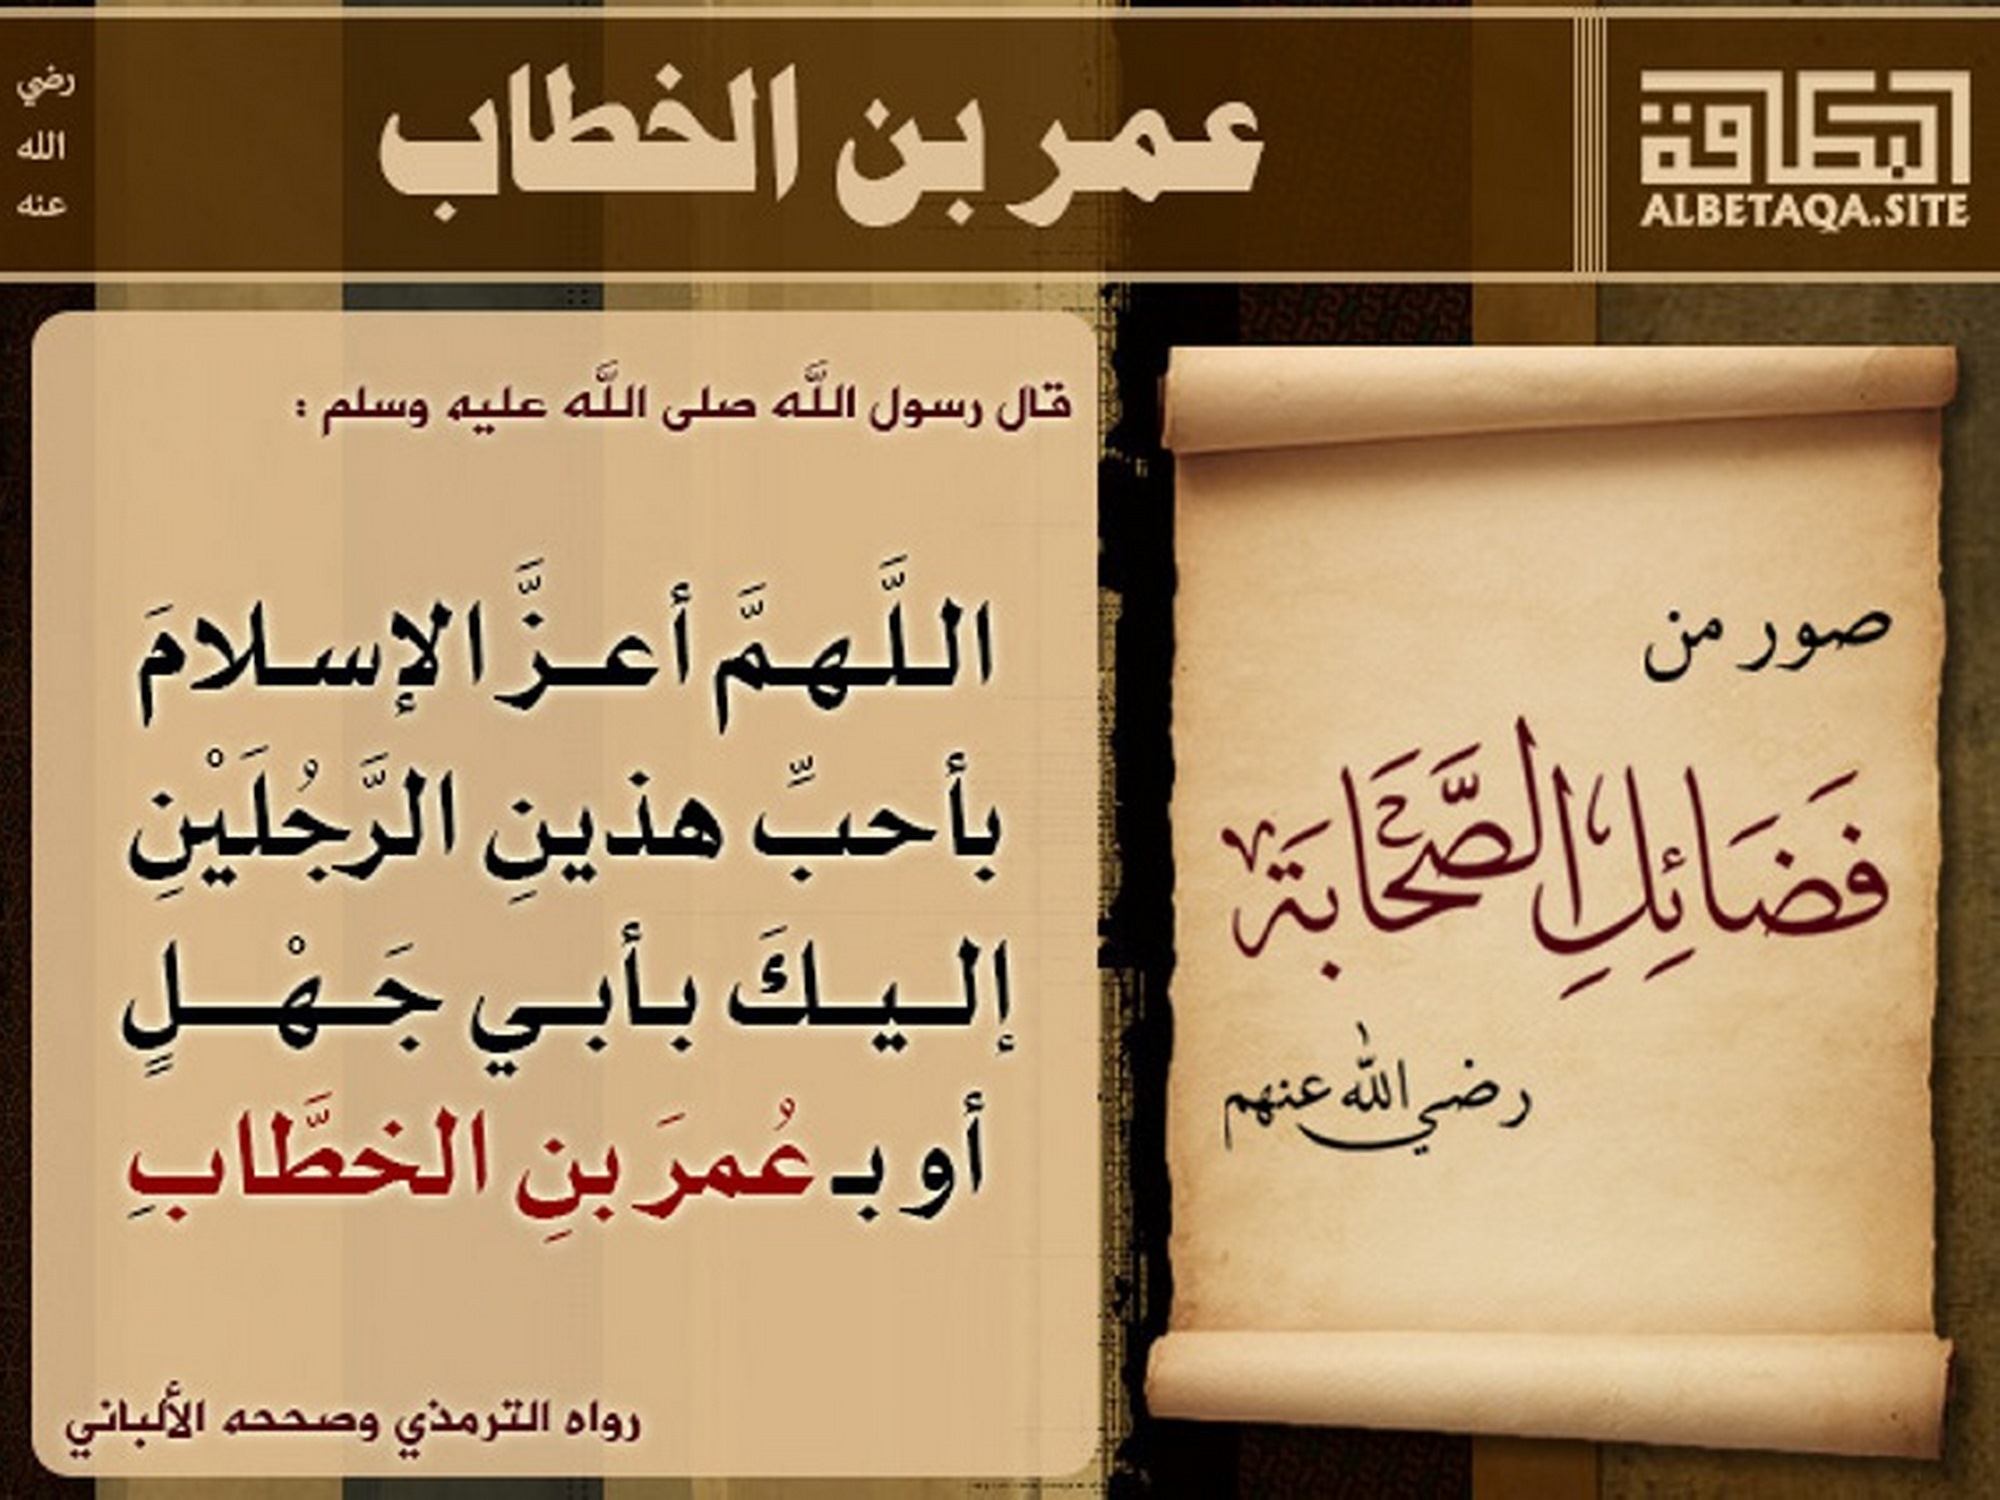 البطاقة
ALBETAQA.SITE
عمر بن الخطاب
رضي
الله
عنه
صور من
فَضَائِلِ الصَّحَابَة
رضي الله عنهم
قال رسول اللَّه صلى اللَّه عليه وسلم :
اللَّهمَّ أعزَّ الإسلامَ
بأحبِّ هذينِ الرَّجُلَيْنِ
إليكَ بأبي جَهْلٍ
أو بـ عُمرَ بنِ الخطَّابِ
رواه الترمذي وصححه الألباني